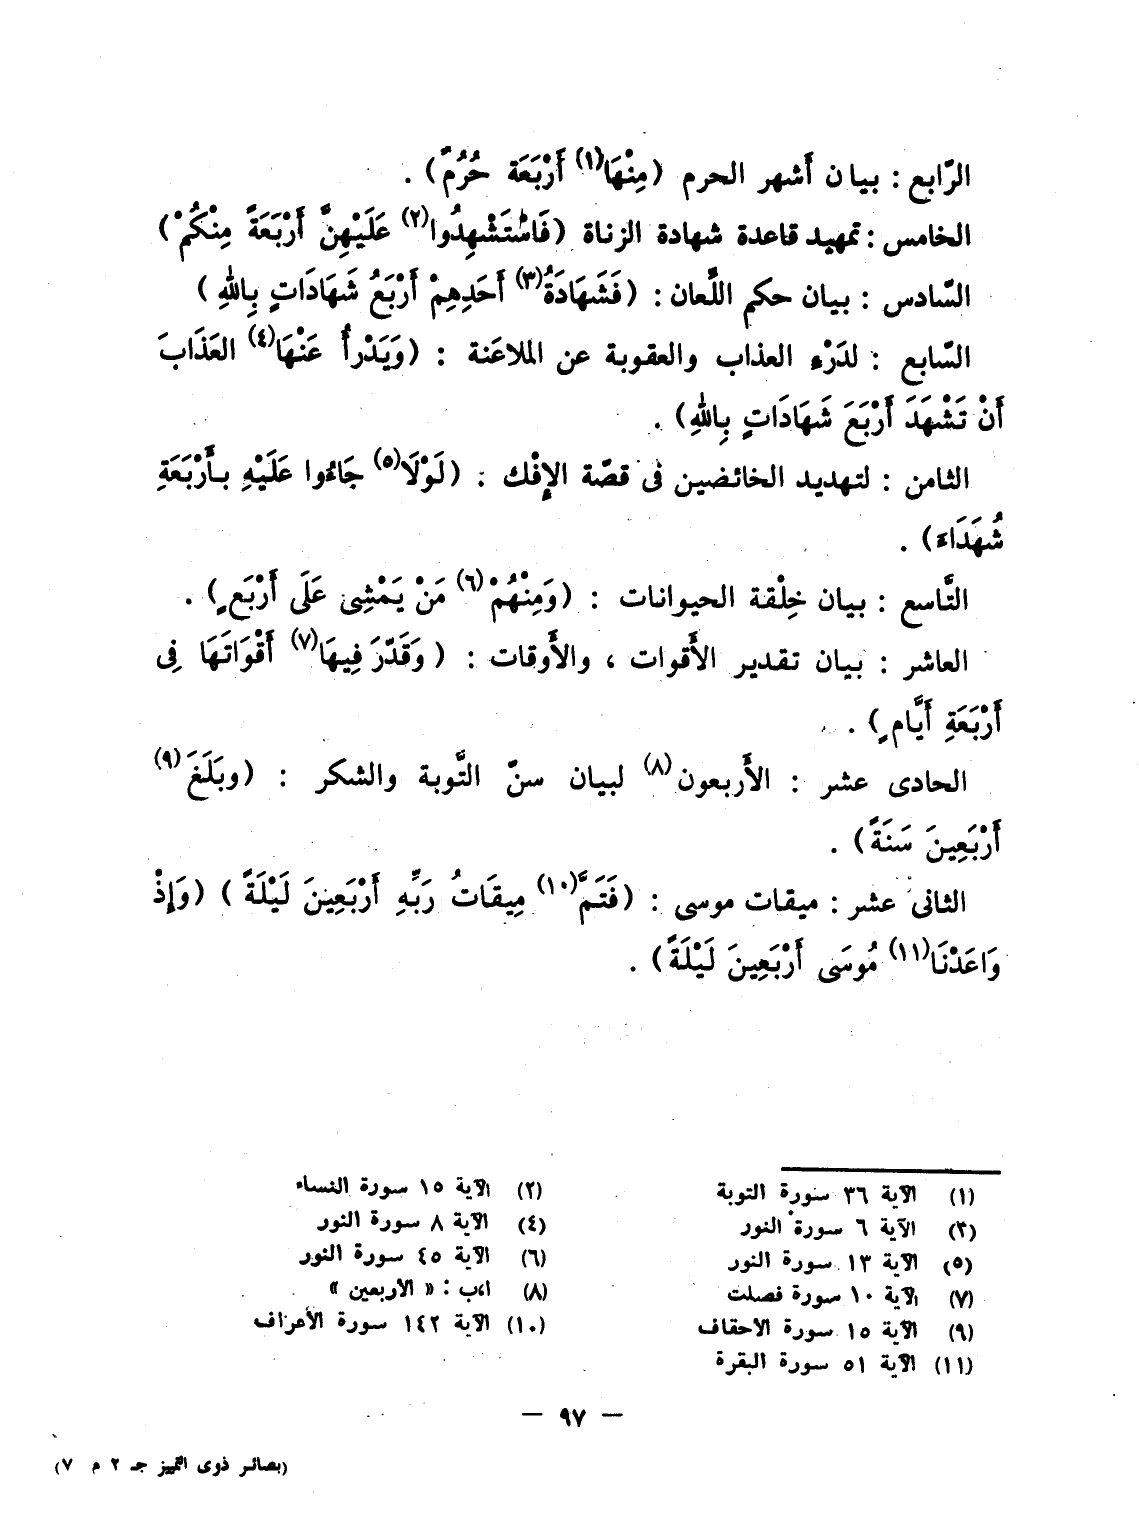 الرّابع : بيان أَشهر الحرم (مِنْهَا(١) أَرْبَعَة حُرُمٌ) .
الخامس : تمهيد قاعدة شهادة الزناة (فَاسْتَشْهِدُوا(٢) عَلَيْهِنَّ أَرْبَعَةً مِنْكُمْ)
السّادس : بيان حكم اللِّعان : (فَشَهَادَةُ(٣) أَحَدِهِمْ أَرْبَعُ شَهَادَاتٍ بِاللهِ)
السّابع : لدَرْءِ العذاب والعقوبة عن الملاعَنة : (وَيَدْرأُ عَنْهَا(٤) العَذَابَ
أَنْ تَشْهَدَ أَرْبَعَ شَهَادَاتٍ بِاللهِ) .
الثامن : لتهديد الخائضين فى قصّة الإِفْك : (لَوْلَا(٥) جَاءُوا عَلَيْهِ بِأَرْبَعَةِ
شُهَدَاءَ) .
التَّاسع : بيان خِلْقة الحيوانات : (وَمِنْهُمْ(٦) مَنْ يَمْشِى عَلَى أَرْبَعٍ) .
العاشر : بيان تقدير الأَقوات ، والأَوقات : (وَقَدَّرَ فِيهَا(٧) أَقْوَاتَهَا فِى
أَرْبَعَةِ أَيَّامٍ) .
الحادى عشر : الأَربعون(٨) لبيان سنّ التَّوبة والشكر : (وبَلَغَ(٩)
أَرْبَعِينَ سَنَةً) .
الثانى عشر : ميقات موسى : (فَتَمَّ(١٠) مِيقَاتُ رَبِّهِ أَرْبَعِينَ لَيْلَةً) (وَإِذْ
وَاعَدْنَا(١١) مُوسَى أَرْبَعِينَ لَيْلَةً) .
(١) الآية ٣٦ سورة التوبة
(٢) الآية ١٥ سورة النساء
(٣) الآية ٦ سورة النور
(٤) الآية ٨ سورة النور
(٥) الآية ١٣ سورة النور
(٦) الآية ٤٥ سورة النور
(٧) الآية ١٠ سورة فصلت
(٨) ا،ب : « الأربعين »
(٩) الآية ١٥ سورة الاحقاف
(١٠) الآية ١٤٢ سورة الأعراف
(١١) الآية ٥١ سورة البقرة
— ٩٧ —
(بصائر ذوى التمييز جـ ٢ م ٧)